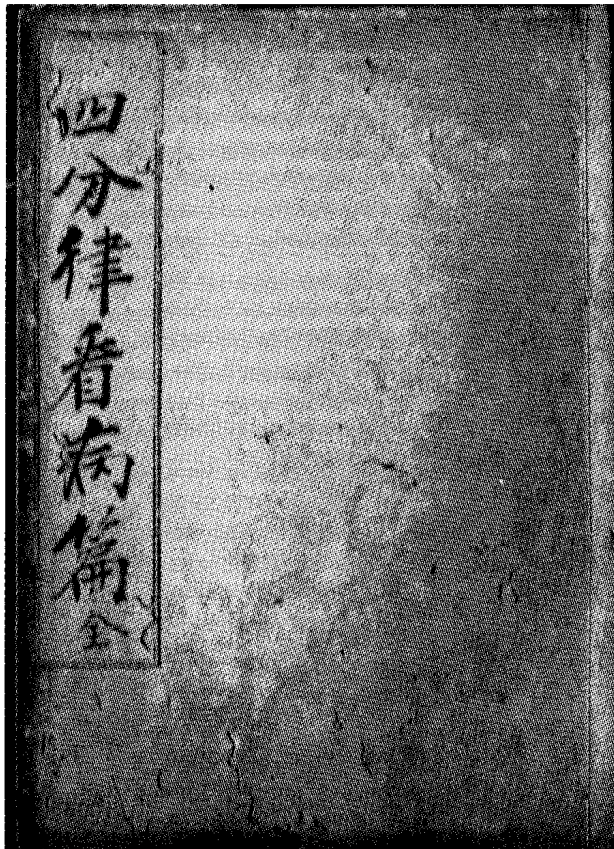 四分律看病篇全